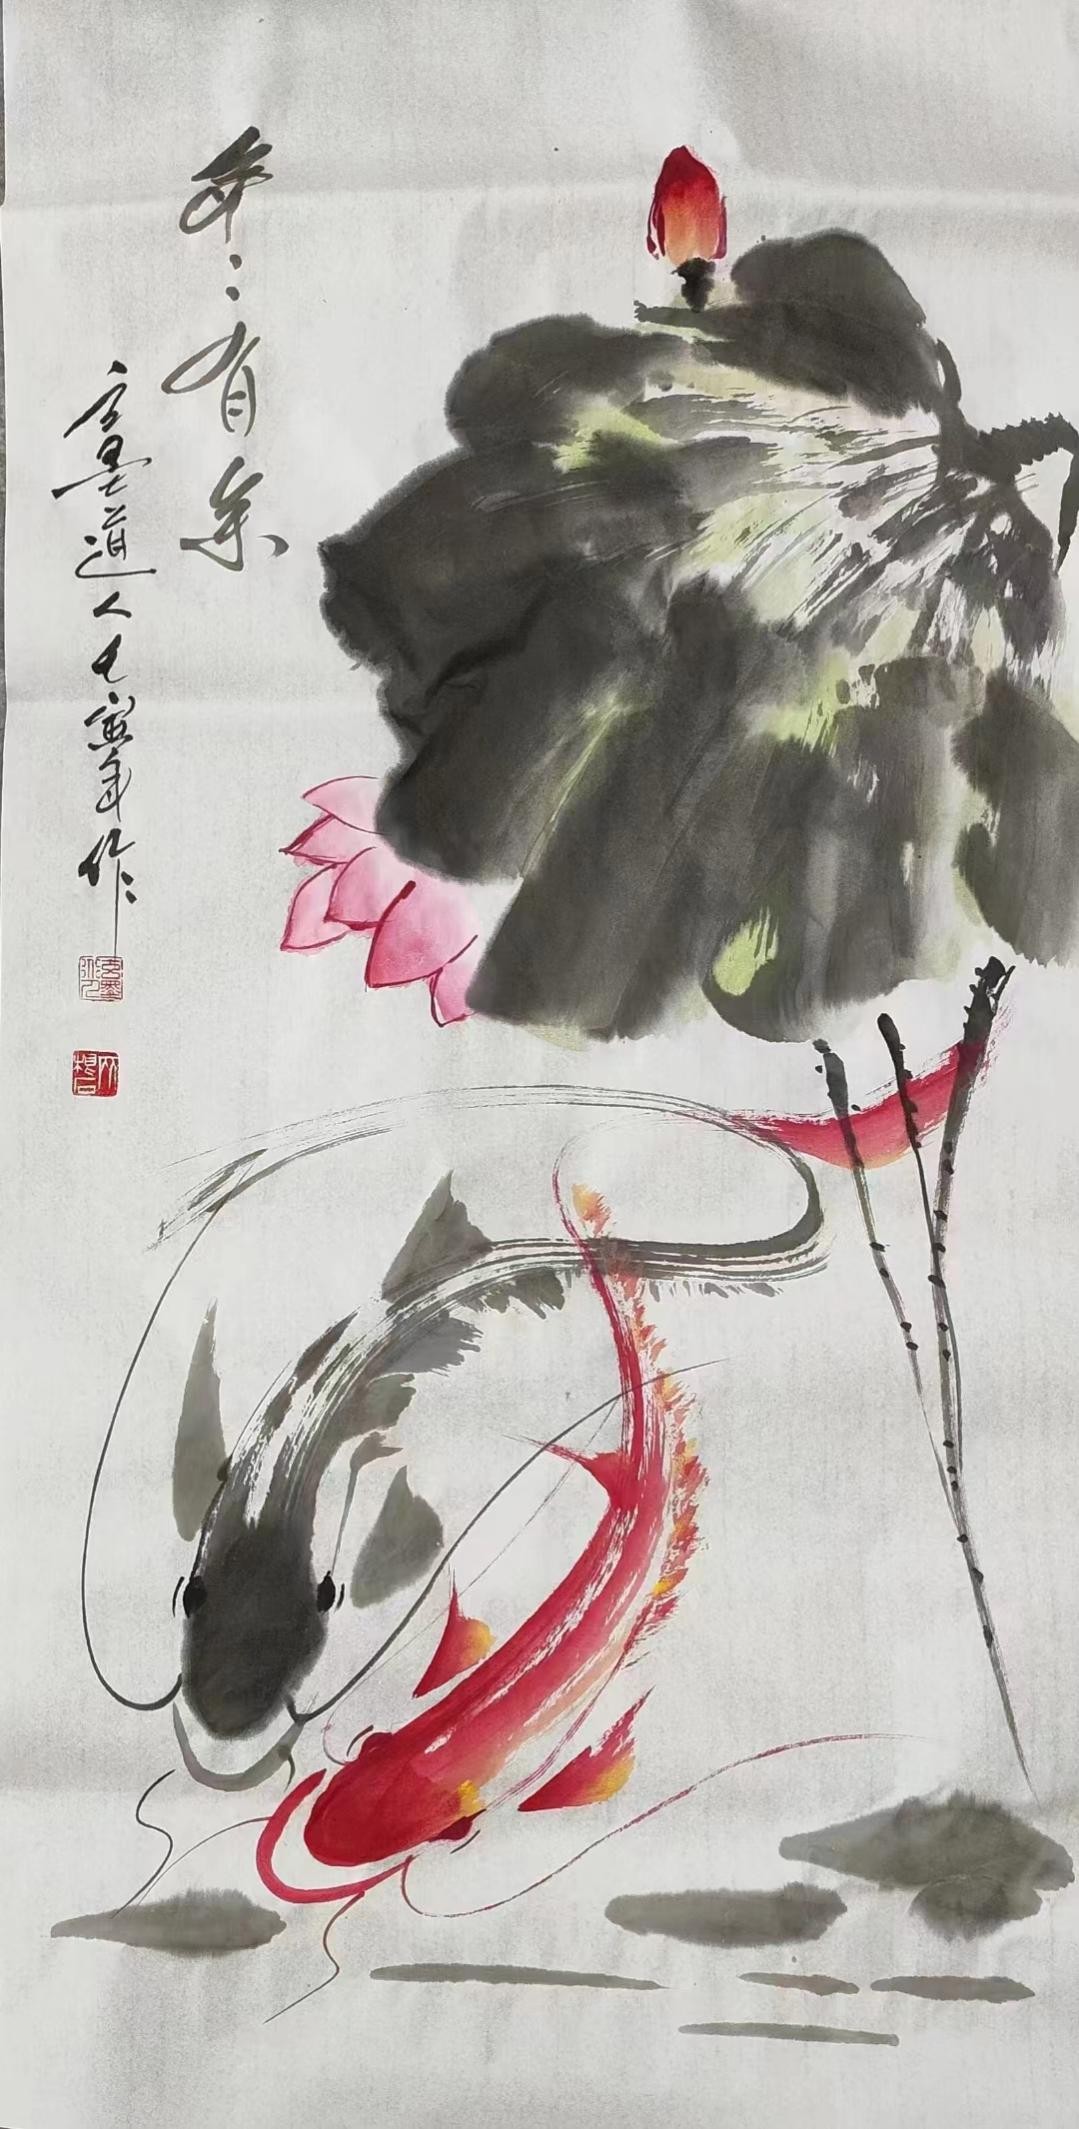 年〻有余
墨道人壬寅年作